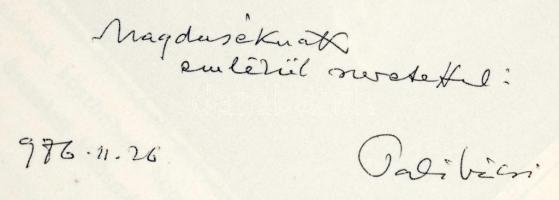 Magduséknak
emlékül szeretettel:
976.11.26 Pali bácsi